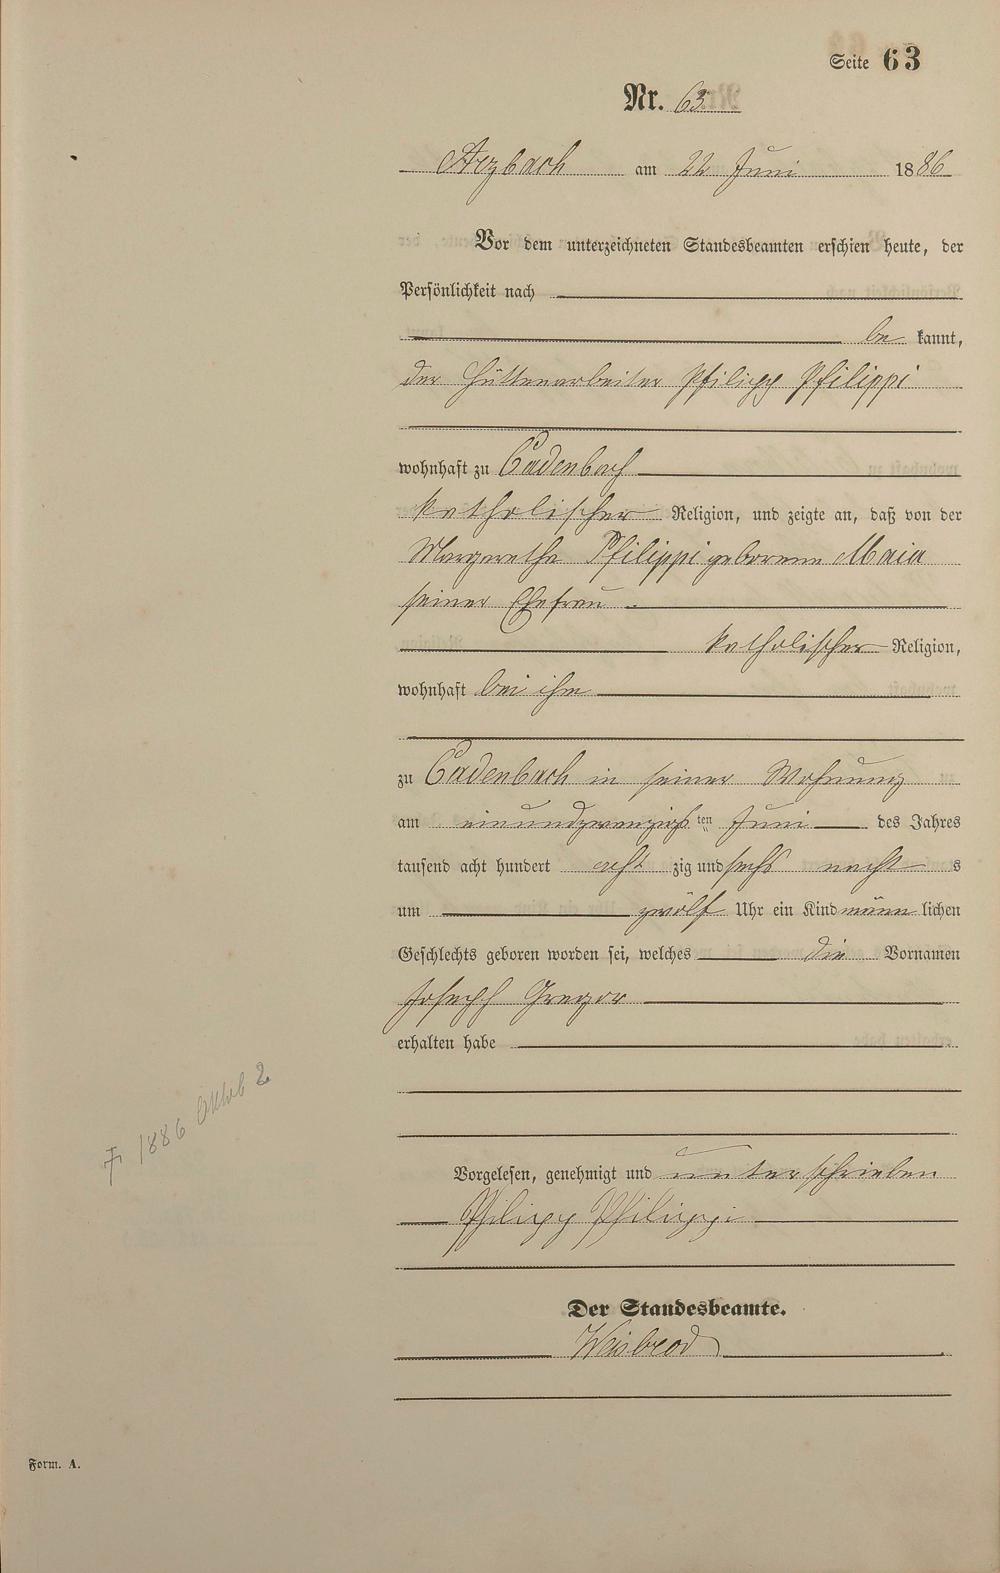 Seite 63
Nr. 63
Arzbach am 22 Juni 1886
Vor dem unterzeichneten Standesbeamten erschien heute, der
Persönlichkeit nach
be kannt,
der Hüttenarbeiter Philipp Philippi
wohnhaft zu Cadenbach
katholischer Religion, und zeigte an, daß von der
Margaretha Philippi geborenen Maia
seiner Ehefrau
katholischer Religion,
wohnhaft bei ihm
zu Cadenbach in seiner Wohnung
am einundzwanzigsten Juni des Jahres
tausend acht hundert acht zig und sechs nachts
um zwölf Uhr ein Kind männlichen
Geschlechts geboren worden sei, welches die Vornamen
Joseph Gregor
erhalten habe
† 1886 Oktob 2
Vorgelesen, genehmigt und unterschrieben
Philipp Philippi
Der Standesbeamte.
Weisbrod
Form. A.